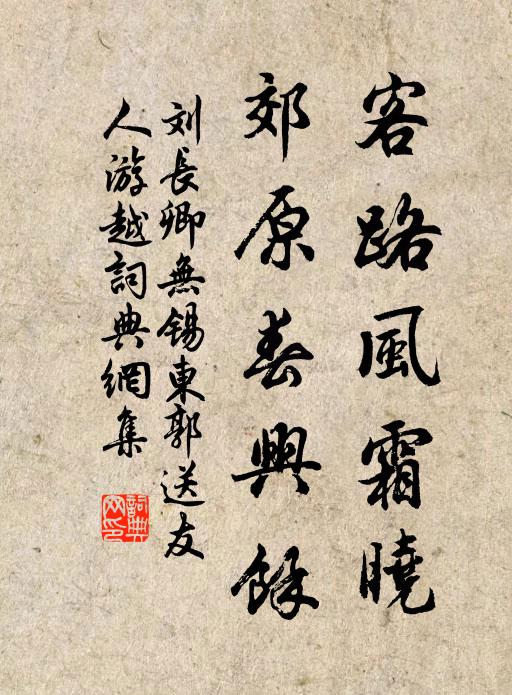 客路風霜曉
郊原春興餘
刘長卿無錫東郭送友
人游越詞典網集
詞典
网印